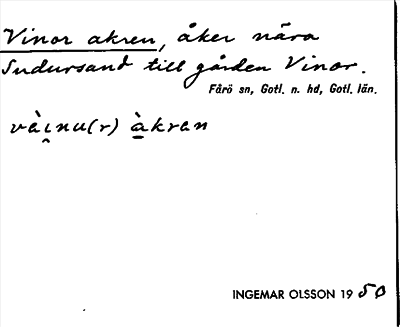 Vinor akren, åker nära
Sudursand till gården Vinor.
Fårö sn, Gotl. n. hd, Gotl. län.
vὰi̯nu(r) ὰ̱kran
INGEMAR OLSSON 1950